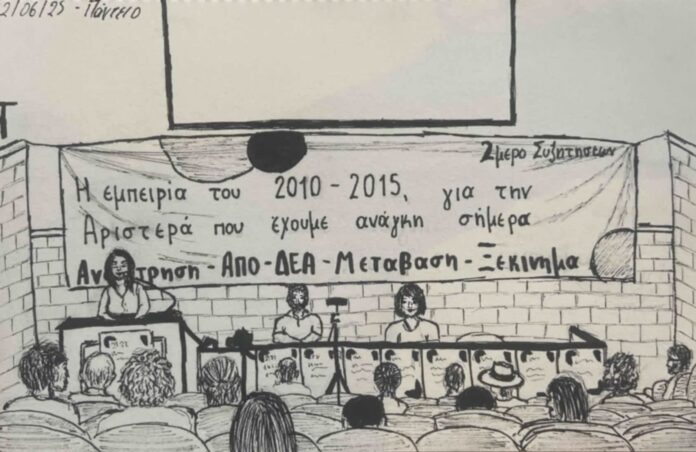 2/06/25 - Πάντειο
2μερο Συζητησεων
Η εμπειρία του 2010 - 2015, για την
Αριστερά που έχουμε ανάγκη σήμερα
- ΑΠΟ - ΔΕΑ - Μετάβαση - Ξεκίνημα